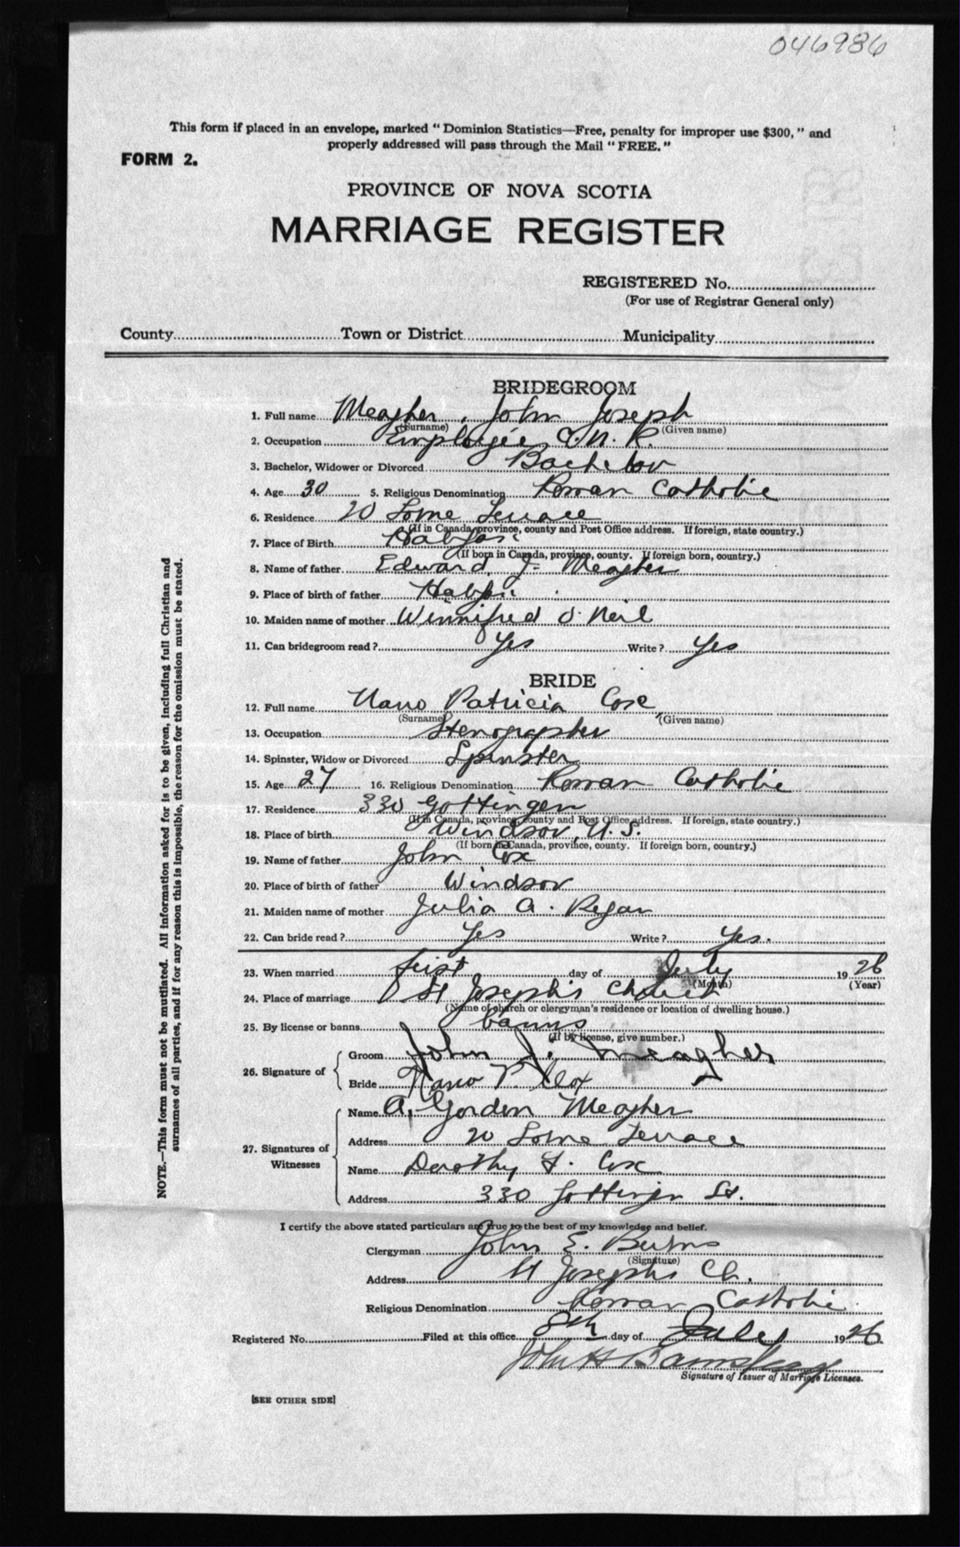 046986
This form if placed in an envelope, marked "Dominion Statistics—Free, penalty for improper use $300," and
properly addressed will pass through the Mail "FREE."
FORM 2.
PROVINCE OF NOVA SCOTIA
MARRIAGE REGISTER
REGISTERED No.
(For use of Registrar General only)
County Town or District Municipality
BRIDEGROOM
1. Full name Meagher, John Joseph
(Surname) (Given name)
2. Occupation Employée C.N.R.
3. Bachelor, Widower or Divorced Bachelor
4. Age 30 5. Religious Denomination Roman Catholic
6. Residence 20 Lorne Terrace
(If in Canada, province, county and Post Office address. If foreign, state country.)
7. Place of Birth Halifax
(If born in Canada, province, county. If foreign born, country.)
8. Name of father Edward J. Meagher
9. Place of birth of father Halifax
10. Maiden name of mother Winnifred O'Neil
11. Can bridegroom read? Yes Write? Yes
BRIDE
12. Full name Nano Patricia Cox
(Surname) (Given name)
13. Occupation Stenographer
14. Spinster, Widow or Divorced Spinster
15. Age 27 16. Religious Denomination Roman Catholic
17. Residence 330 Gottingen
(If in Canada, province, county and Post Office address. If foreign, state country.)
18. Place of birth Windsor, N.S.
(If born in Canada, province, county. If foreign born, country.)
19. Name of father John Cox
20. Place of birth of father Windsor
21. Maiden name of mother Julia A. Regan
22. Can bride read? Yes Write? Yes.
23. When married first day of July 1926
(Month) (Year)
24. Place of marriage St Joseph's Church
(Name of church or clergyman's residence or location of dwelling house.)
25. By license or banns banns
(If by license, give number.)
26. Signature of
Groom John J. Meagher
Bride Nano P. Cox
27. Signatures of Witnesses
Name A. Gordon Meagher
Address 20 Lorne Terrace
Name Dorothy F. Cox
Address 330 Gottingen St.
I certify the above stated particulars are true to the best of my knowledge and belief.
Clergyman John E. Burns
(Signature)
Address St Josephs Ch.
Religious Denomination Roman Catholic
Registered No. Filed at this office 8th day of July 1926
John H
Signature of Issuer of Marriage Licenses.
[SEE OTHER SIDE]
NOTE.—This form must not be mutilated. All information asked for is to be given, including full Christian and
surnames of all parties, and if for any reason this is impossible, the reason for the omission must be stated.